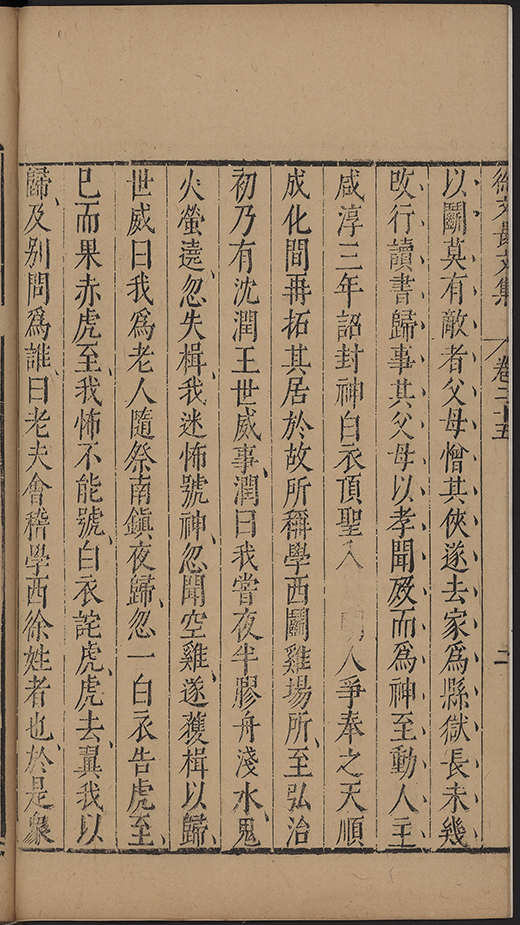 徐文長文集 卷二十五 二
以鬭莫有敵者父母憎其俠遂去家爲縣獄長未幾
攺行讀書歸事其父母以孝聞殁而爲神至動人主
咸淳三年詔封神白衣頂聖 人爭奉之天順
成化間再拓其居於故所稱學西鬭雞場所、至弘治
初乃有沈潤王世威事、潤曰我嘗夜半膠舟淺水、鬼
火螢遶、忽失楫、我迷怖號神、忽聞空雞、遂䕶楫以歸、
世威曰我爲老人隨祭南鎭夜歸、忽一白衣告虎至、
巳而果赤虎至、我怖不能號、白衣詫虎、虎去、異我以
歸、及别問爲誰、曰老夫會稽學西徐姓者也、於是衆